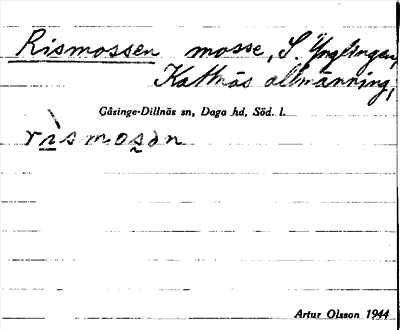 Rismossen mosse, S. Ynglingen,
Kattnäs allmänning,
Gåsinge-Dillnäs sn, Daga hd, Söd. l.
rìsmosən
Artur Olsson 1944